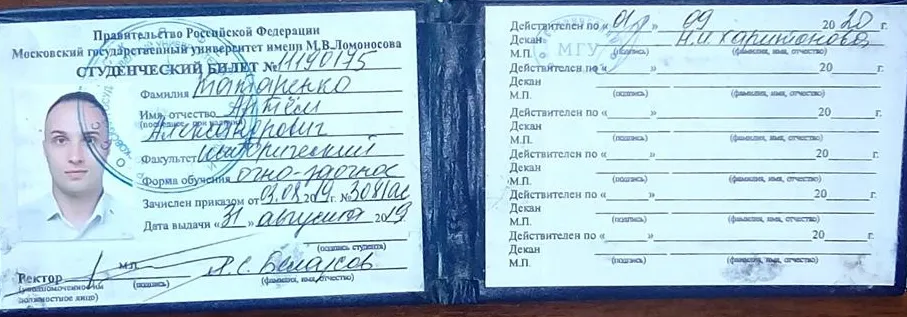 Правительство Российской Федерации
Московский государственный университет имени М.В.Ломоносова
СТУДЕНЧЕСКИЙ БИЛЕТ № 11190175
Фамилия Татаренко
Имя, отчество Артём
Александрович
Факультет исторический
Форма обучения очно-заочное
Зачислен приказом от 03.08.2019г. № 3081ас
Дата выдачи «31» августа 2019
(подпись студента)
Ректор М.П.
(уполномоченное им должностное лицо)
(подпись) (фамилия, имя, отчество)
Действителен по « 09 2020 г.
Декан Н.И. Харитонова
М.П. (подпись) (фамилия, имя, отчество)
МГУ
Действителен по « » 20 г.
Декан
М.П. (подпись) (фамилия, имя, отчество)
Действителен по « » 20 г.
Декан
М.П. (подпись) (фамилия, имя, отчество)
Действителен по « » 20 г.
Декан
М.П. (подпись) (фамилия, имя, отчество)
Действителен по « » 20 г.
Декан
М.П. (подпись) (фамилия, имя, отчество)
Действителен по « » 20 г.
Декан
М.П. (подпись) (фамилия, имя, отчество)